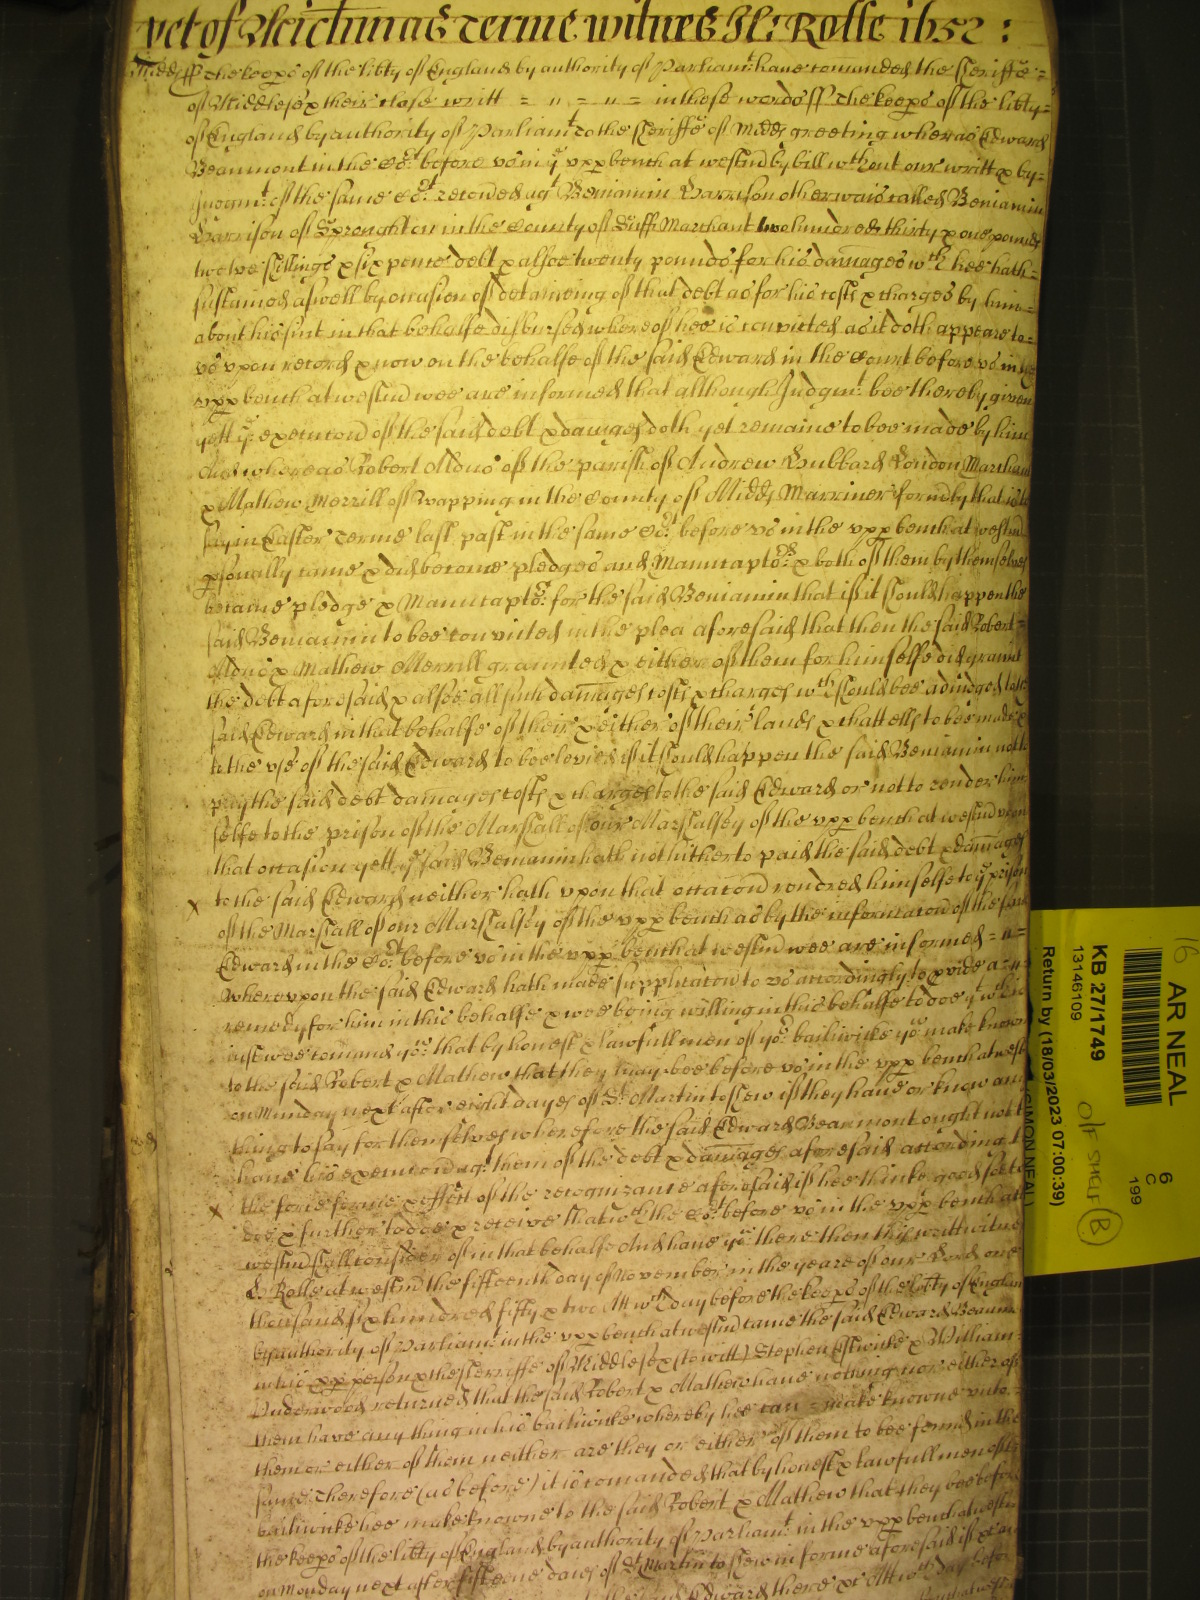 yet of Micħmas Terme witnes H: Rolle 1652:
Midd ss The keeps of the libty of England by authority of Parliamt have comanded the Sheriffe =
of Middlesex their close writt = " = " = in these words ss The keeps of the libty =
of England by authority of Parliamt to the Sheriffe of Midds greeting wheras Edward
Beaumont in the Cot before us in ye upp bench at westmd by bill wthout our writt & by =
Judgmt of the same Cot recoved agt Beniamin Harrison otherwais called Beniamin
Harrison of Sproughton in the County of Suff Marchant two hundred thirty & one pounds
twelve shillings & six pence debt & alsoe twenty pounds for his damages wch hee hath =
sustained aswell by occasion of detaineing of that debt as for his costs & charges by him =
about his suit in that behalfe disbursed whereof hee is convicted as it doth appeare to =
us upon record & now on the behalfe of the said Edward in the Court before us in ye
upp bench at westmd wee are informed that although Judgmt bee thereby given
yett ye execucon of the said debt & damages doth yet remaine to bee made by him
And whereas Robert Aldus of the parish of Andrew Hubbard London Marchant
& Mathew Merrill of Wapping in the County of Midds Marriner formly that is to
say in Easter Terme last past in the same Cot before us in the upp bench at westmd
psonally came & did become pledges and Manucaptors & both of them by themselves
became pledge & Manucaptor for the said Beniamin that if it should happen the
said Beniamin to bee convicted in the plea aforesaid that then the said Robert =
Aldus & Mathew Merrill graunted & either of them for himselfe did graunt
the debt aforesaid & alsoe all such damages costs & charges wch should bee adiudged to the
said Edward in that behalfe of their & either of their lands & chattells to bee made &
to the use of the said Edward to bee levied if it should happen the said Beniamin not to
pay the said debt damages costs & charges to the said Edward or not to render him
selfe to the prison of the Marshall of our Marshalsey of the upp bench at westmd upon
that occasion yett ye said Beniamin hath not hitherto paid the said debt & damages
to the said Edward neither hath upon that occacon rendred himselfe to ye prison
of the Marshall of our Marshalsey of the upp bench as by the informacon of the said
Edward in the Cot before us in the upp bench at westmd wee are informed = " =
whereupon the said Edward hath made supplicacon to us accordingly to pvide a
remedy for him in this behalfe & wee being willing in this behalfe to doe yt wch is
iust wee comand you that by honest & lawfull men of yor bailiwicke you make known
to the said Robert & Mathew that they may bee before us in the upp bench at westmd
on Munday next after eight dayes of St Martin to shew if they have or know any
thing to say for themselves wherefore the said Edward Beaumont ought not to
have his execucon agt them of the debt & damages aforesaid according to
the force forme & effect of the recognizance aforesaid if hee thinke good soe to
doe & further to doe & receive that wch the Cot before us in the upp bench att
westmd shall consider of in that behalfe And have you there then this writt witnes
H Rolle at westmd the fifteenth day of November in the yeare of our Lord one
thousand six hundred fifty & two Att wch day before the keeps of the libty of England
by authority of Parliamt in the upp bench at westmd came the said Edward Beaumont
in his pp person & the Sherriffe of Middlesex (to witt) Stephen Estwicke & William
Underwood returned that the said Robert & Mathew have nothing nor either of
them have any thing in his bailiwicke whereby hee can = make knowne unto =
them or either of them neither are they or either of them to bee found in the
same Therefore (as before) it is comanded that by honest & lawfull men of
bailiwicke hee make knowne to the said Robert & Mathew that they bee before
the keeps of the libty of England by authority of Parliamt in the upp bench at westmd
on Monday next after fifteene daies of St Martin to shew in forme aforesaid if &c
Edward there &c Att wch day before
16
AR NEAL
KB 27/1749
13146109
6
C
199
O/F SHELF B
Return by (18/03/2023 07:00:39)
(SIMON NEAL)